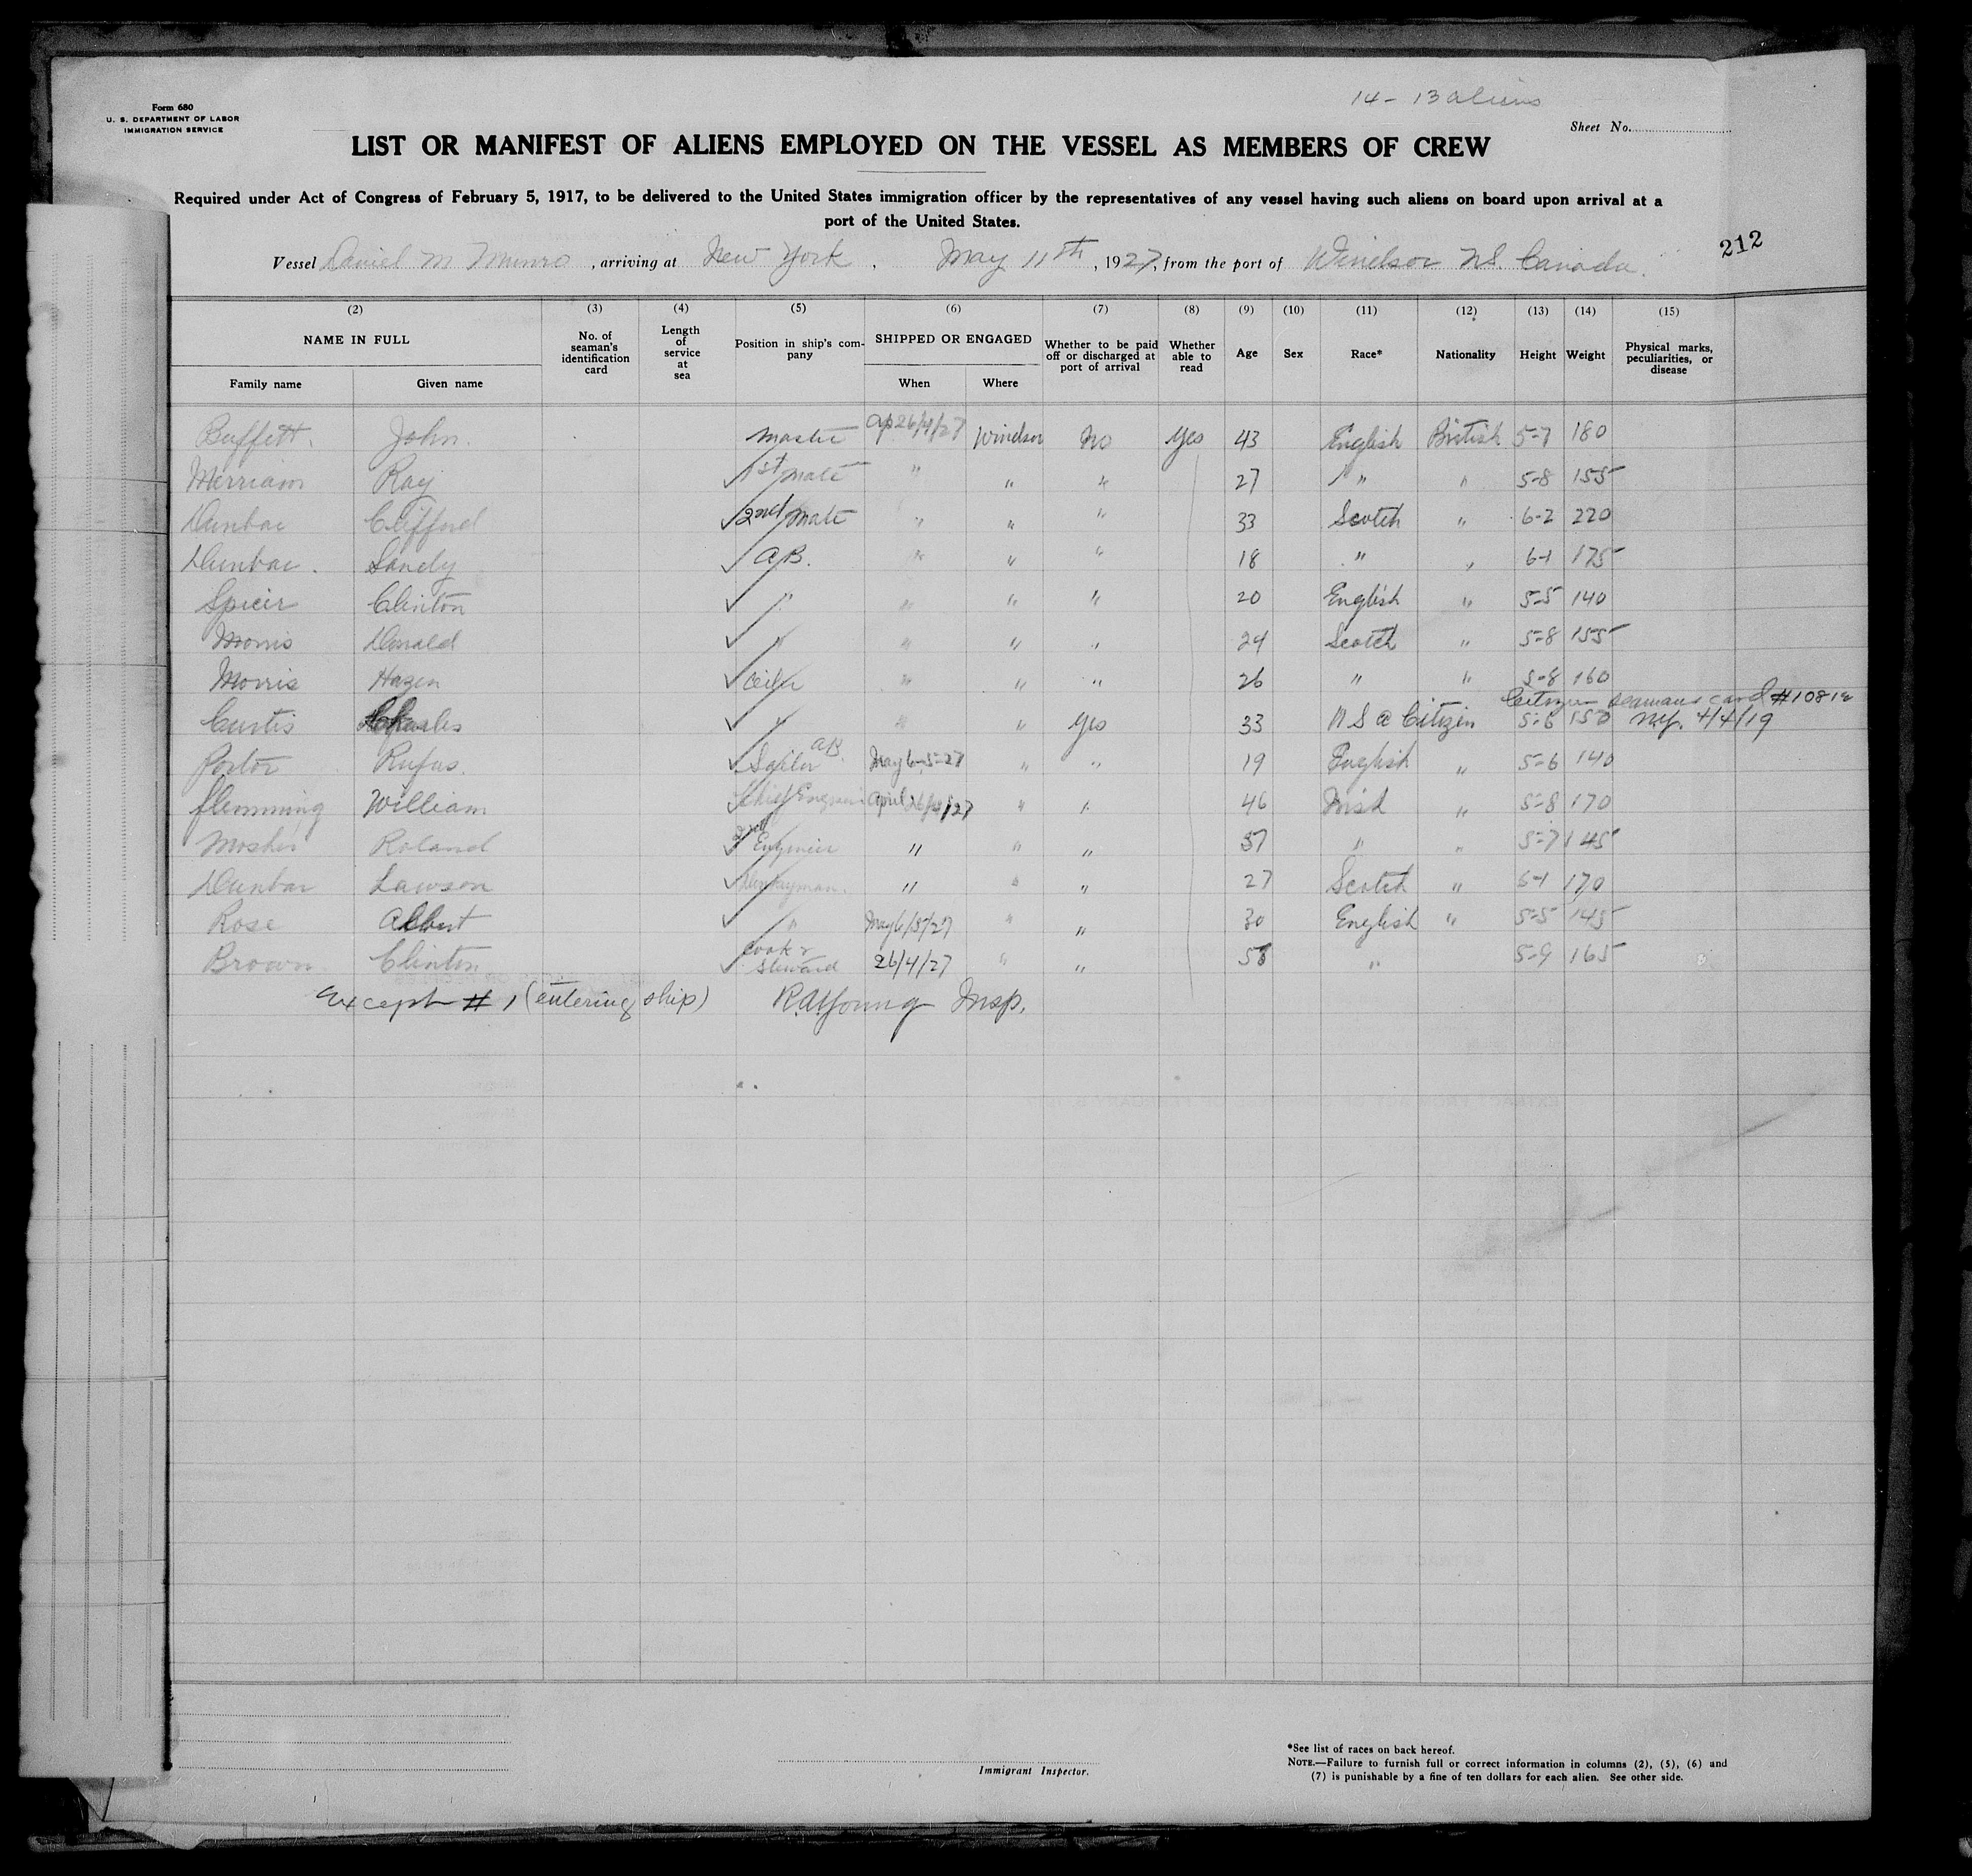 14 - 13 aliens
Form 680
U. S. DEPARTMENT OF LABOR
IMMIGRATION SERVICE
Sheet No.
LIST OR MANIFEST OF ALIENS EMPLOYED ON THE VESSEL AS MEMBERS OF CREW
Required under Act of Congress of February 5, 1917, to be delivered to the United States immigration officer by the representatives of any vessel having such aliens on board upon arrival at a
port of the United States.
212
Vessel Daniel M Munro , arriving at New York , May 11th , 1927, from the port of Windsor N.S. Canada.
(2) (3) (4) (5) (6) (7) (8) (9) (10) (11) (12) (13) (14) (15)
NAME IN FULL
Family name Given name
No. of seaman's identification card
Length of service at sea
Position in ship's company
SHIPPED OR ENGAGED
When Where
Whether to be paid off or discharged at port of arrival
Whether able to read
Age Sex Race* Nationality Height Weight
Physical marks, peculiarities, or disease
Buffett. John. Master Ap 26/4/27 Windsor No Yes 43 English British 5-7 180
Merriam Ray ✓ 1st Mate " " " 27 " " 5-8 155
Dunbar Clifford ✓ 2nd Mate " " " 33 Scotch " 6-2 220
Dunbar. Sandy ✓ A.B. " " " 18 " " 6-1 175
Spicer Clinton ✓ " " " " 20 English " 5-5 140
Morris Donald ✓ " " " " 24 Scotch " 5-8 155
Morris Hazen ✓ Oiler " " " 26 " " 5-8 160
Citizen seamans card #10812
Curtis Charles ✓ " " " Yes 33 U S A Citizen 5-6 150 NY. 4/4/19
Portor Rufus. ✓ Sailor A.B. May 6-5-27 " " 19 English " 5-6 140
Flemming William ✓ Chief Engineer April 26/4/27 " " 46 Irish " 5-8 170
Mosher Roland ✓ 2nd Engineer " " " 37 " " 5-7 145
Dunbar Lawson ✓ Donkeyman. " " " 27 Scotch " 6-1 170
Rose Albert ✓ " May 6/5/27 " " 30 English " 5-5 145
Brown Clinton ✓ Cook & Steward 26/4/27 " " 58 " 5-9 165
Except # 1 (entering ship) R.A. Young Insp.
Immigrant Inspector.
*See list of races on back hereof.
NOTE.—Failure to furnish full or correct information in columns (2), (5), (6) and
(7) is punishable by a fine of ten dollars for each alien. See other side.